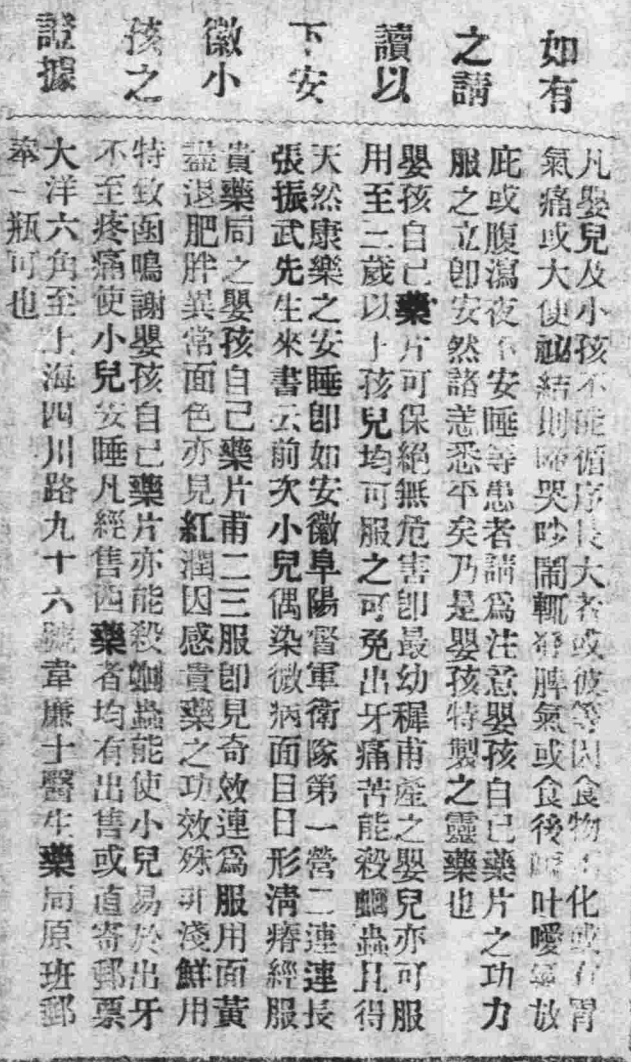 如有
之請
讀以
下安
徽小
孩之
證據
凡嬰兒及小孩不能循序長大者或彼等因食物不化或有胃
氣痛或大便祕結則啼哭吵鬧輒發脾氣或食後嘔吐噯氣放
庇或腹瀉夜不安睡等患者請爲注意嬰孩自己藥片之功力
服之立卽安然諸恙悉平矣乃是嬰孩特製之靈藥也
嬰孩自己藥片可保絕無危害卽最幼穉甫產之嬰兒亦可服
用至二歲以上孩兒均可服之可免出牙痛苦能殺蛔蟲且得
天然康樂之安睡卽如安徽阜陽督軍衛隊第一營二連連長
張振武先生來書云前次小兒偶染微病面目日形淸瘠經服
貴藥局之嬰孩自己藥片甫二三服卽見奇效連爲服用面黃
盡退肥胖異常面色亦見紅潤因感貴藥之功效殊非淺鮮用
特致函鳴謝嬰孩自己藥片亦能殺蛔蟲能使小兒易於出牙
不至疼痛使小兒安睡凡經售西藥者均有出售或直寄郵票
大洋六角至上海四川路九十六號韋廉士醫生藥局原班郵
奉一瓶可也